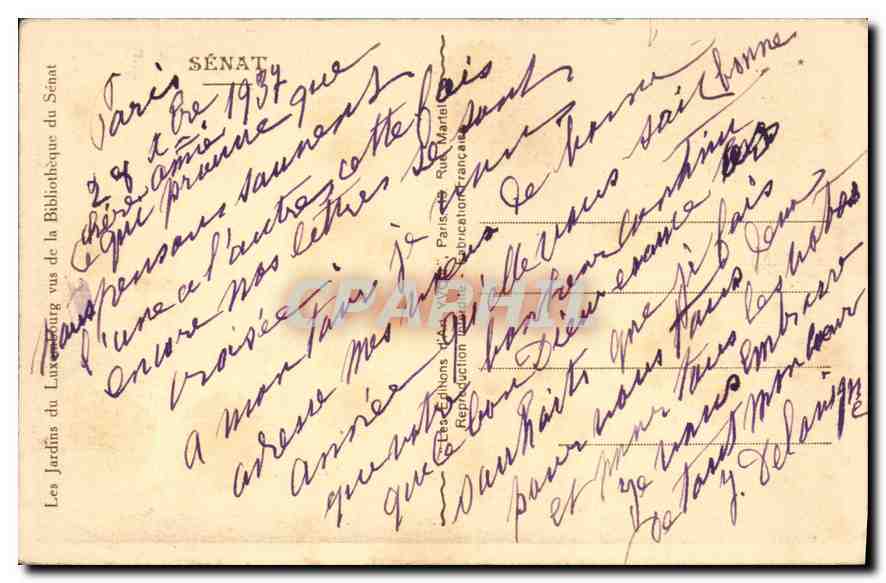 SÉNAT
Les Jardins du Luxembourg vus de la Bibliothèque du Sénat
Les Editions d'Art YVON Paris Rue Martel
Reproduction Interdite Fabrication Française
CPARHIL
Paris
28 Xbre 1937
Chère amie
ce qui prouve que
nous pensons souvent
l'une a l'autre, cette fois
encore nos lettres se sont
croisées
a mon tour je vous
adresse mes vœux de bonne
année qu'elle vous soit bonne
que votre bonheur continu
que le bon Dieu exauce les
souhaits que je fais
pour vous tous deux
et pour tous
je vous embrasse
de tout mon coeur
Y. Delou